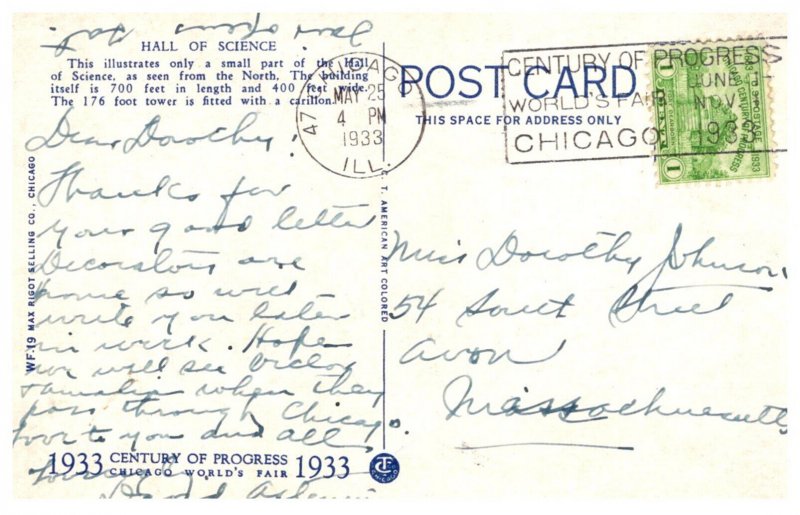 HALL OF SCIENCE
This illustrates only a small part of the Hall
of Science, as seen from the North. The building
itself is 700 feet in length and 400 feet wide.
The 176 foot tower is fitted with a carillon.
Dear Dorothy:
Thanks for
your good letter
Decorators are
home so will
write you later
in week. Hope
we will see Victor
+ Amalia when they
pass through Chicago.
Love to you and all
1933 CENTURY OF PROGRESS 1933
CHICAGO WORLD'S FAIR
WF.19 MAX RIGOT SELLING CO., CHICAGO
C. T. AMERICAN ART COLORED
POST CARD
THIS SPACE FOR ADDRESS ONLY
CHICAGO
47
MAY 25
4 PM
1933
ILL.
CENTURY OF PROGRESS
WORLD'S FAIR
CHICAGO
JUNE 1
NOV. 1
1933
1
Miss Dorothy Johnson
54 South Street
Avon
Massachusetts